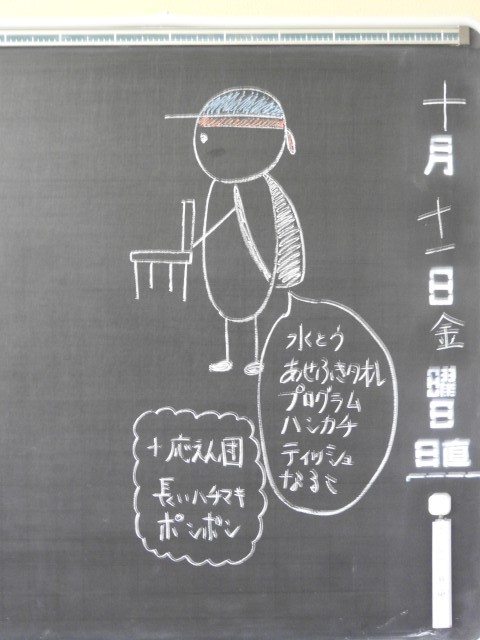 十月十一日金曜日
日直
水とう
あせふきタオル
プログラム
ハンカチ
ティッシュ
なるこ
+応えん団
長いハチマキ
ポンポン